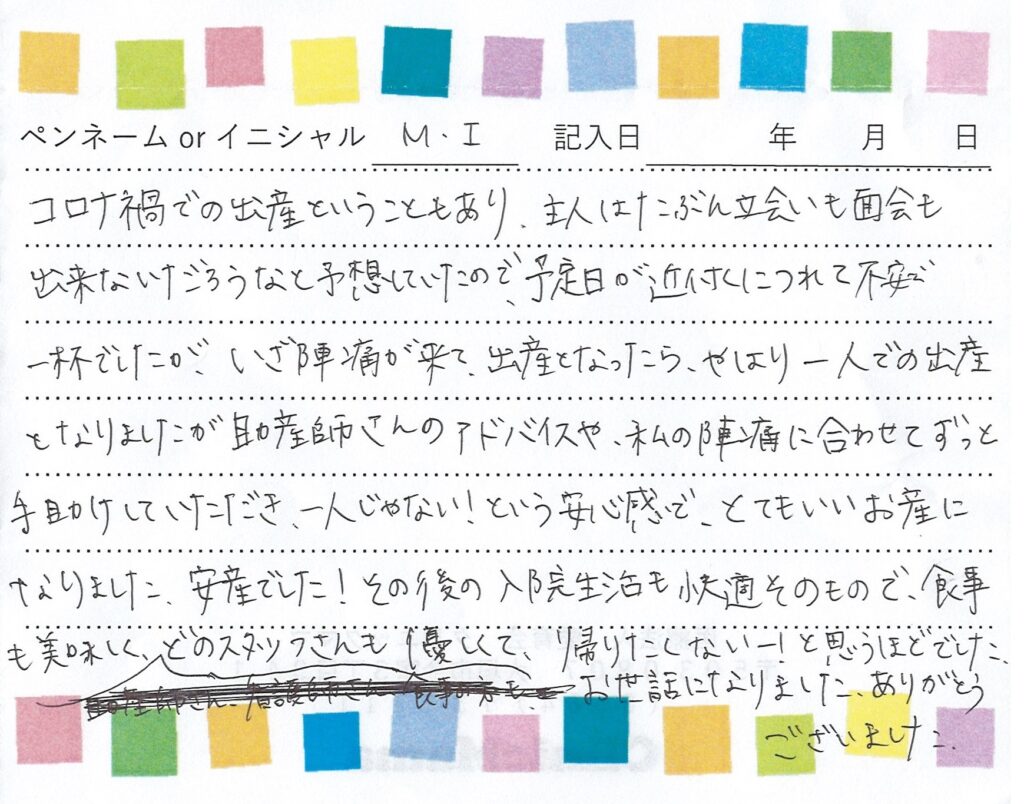 ペンネーム or イニシャル M・I 記入日 年 月 日
コロナ禍での出産ということもあり、主人はたぶん立会いも面会も
出来ないだろうなと予想していたので、予定日が近付くにつれて不安で
一杯でしたが、いざ陣痛が来て、出産となったら、やはり一人での出産
となりましたが助産師さんのアドバイスや、私の陣痛に合わせてずっと
手助けしていただき、一人じゃない！という安心感で、とてもいいお産に
なりました。安産でした！その後の入院生活も快適そのもので、食事
も美味しく、どのスタッフさんも優しくて、帰りたくないー！と思うほどでした。
助産師さん、看護師さん 食事の方も
お世話になりました。ありがとう
ございました。